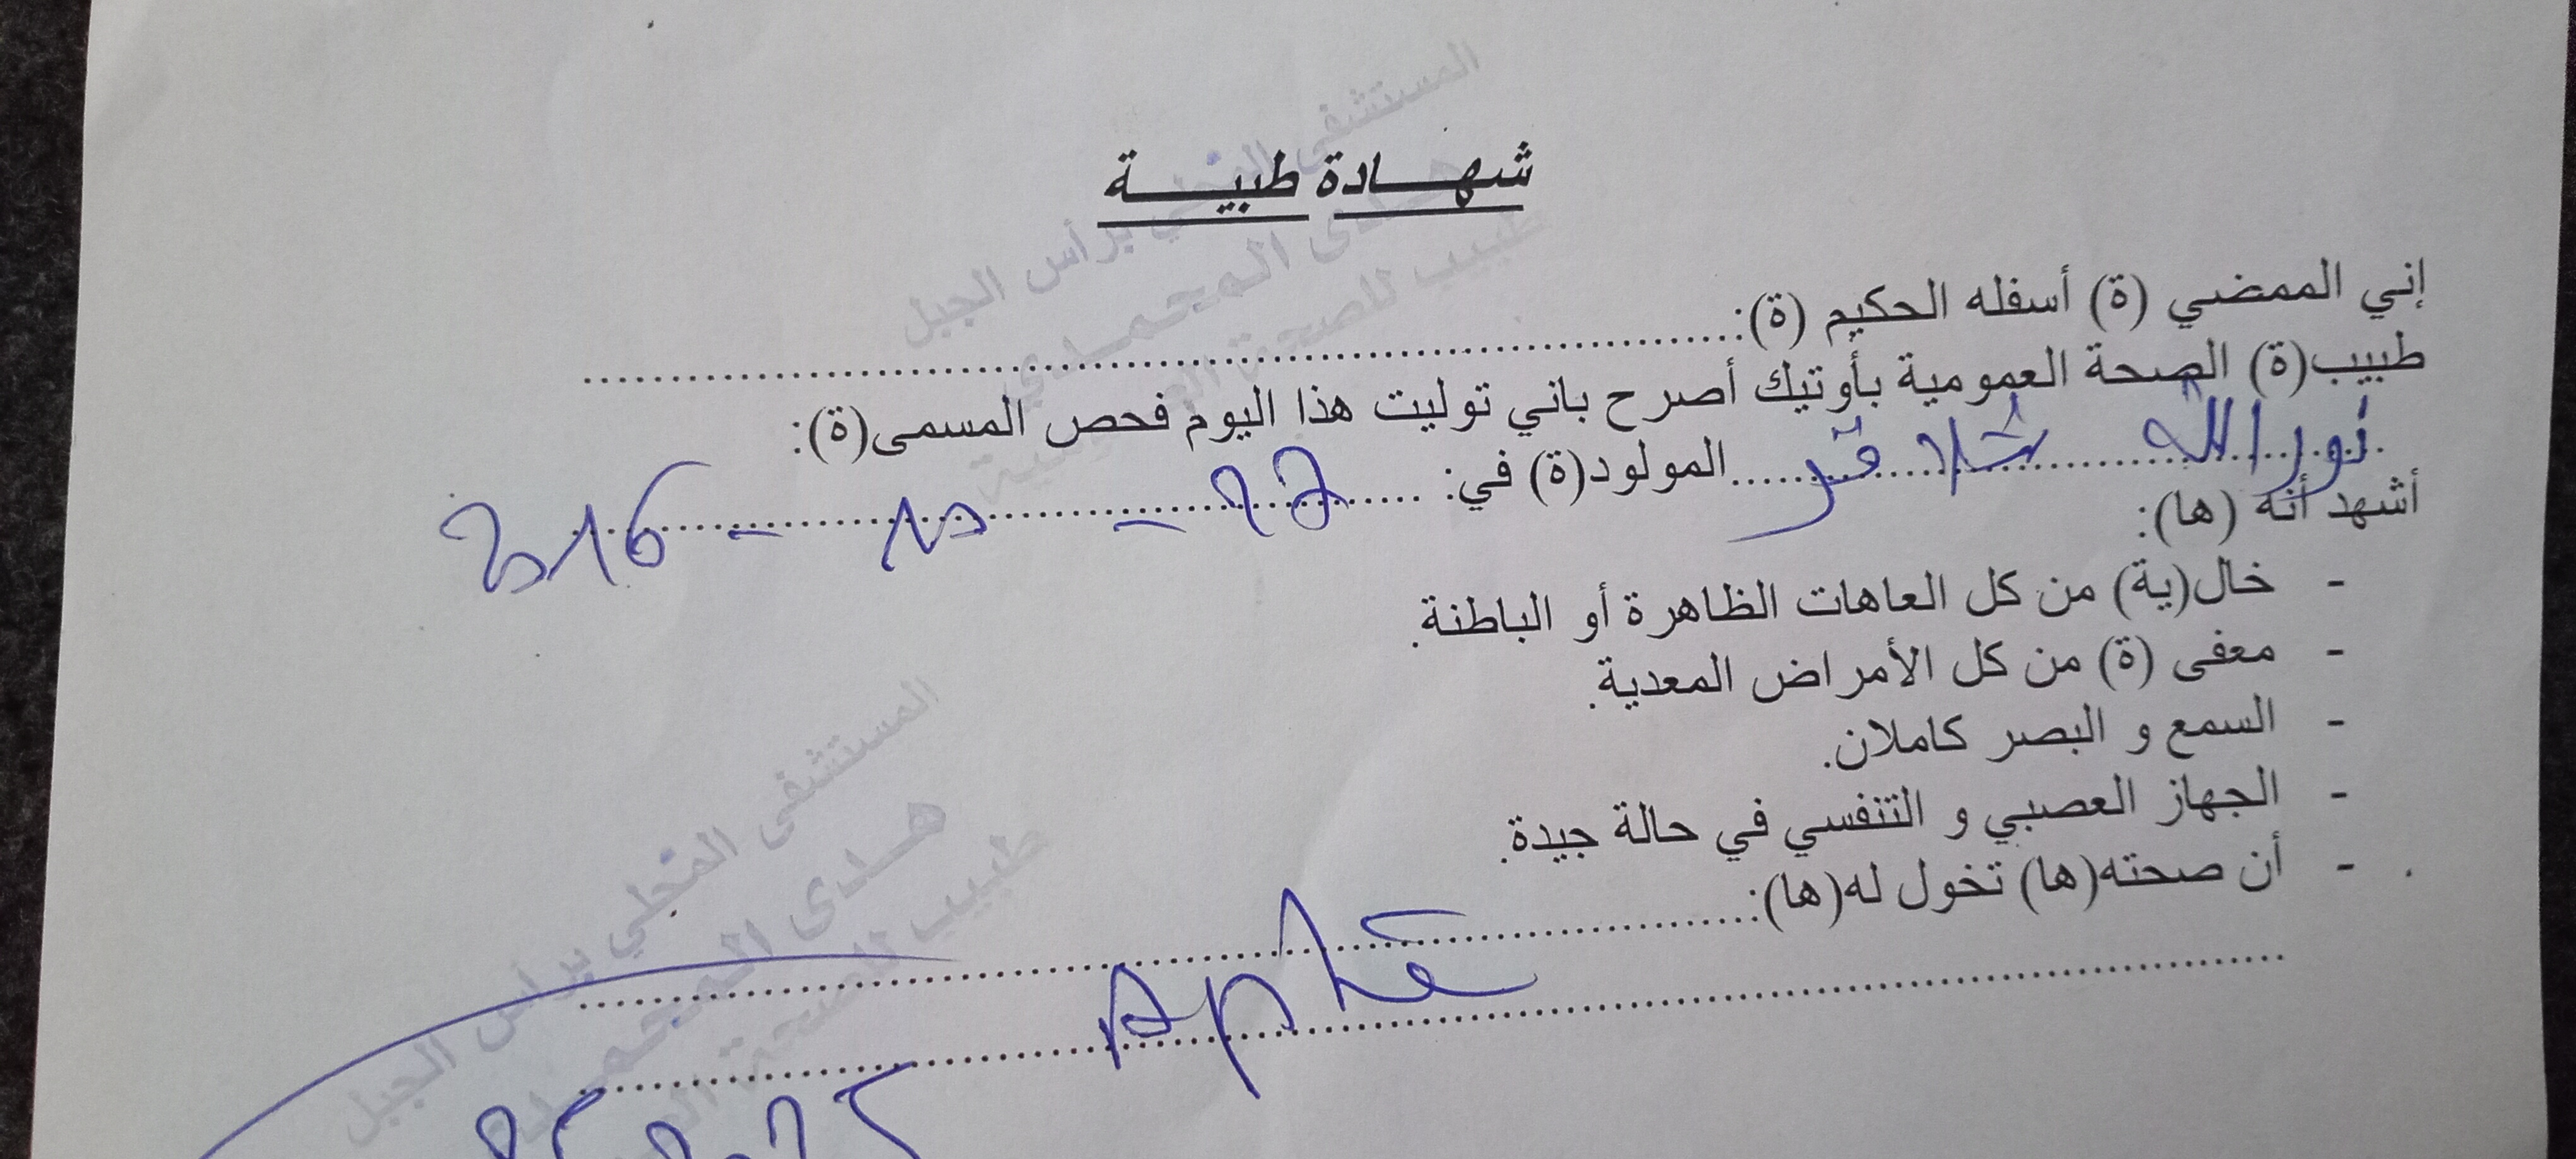 شهادة طبية
المستشفى المحلي برأس الجبل
هدى المحمدي
طبيب للصحة العمومية
إني الممضي (ة) أسفله الحكيم (ة):
طبيب(ة) الصحة العمومية بأوتيك أصرح باني توليت هذا اليوم فحص المسمى(ة):
نور الله المولود(ة) في:
أشهد أنه (ها):
- خال(ية) من كل العاهات الظاهرة أو الباطنة.
- معفى (ة) من كل الأمراض المعدية.
- السمع و البصر كاملان.
- الجهاز العصبي و التنفسي في حالة جيدة.
- أن صحته(ها) تخول له(ها):
Apte
المستشفى المحلي برأس الجبل
هدى المحمدي
طبيب للصحة